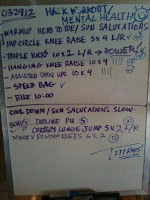 032912 HACK WORKOUT/
MENTAL HEALTH
- WARMUP HEAD TO TOE/ SUN SALUTATIONS
- CIRCLE KNEE RAISE 5 X 4 L/R
- TRIPLE KICKS 10 X 2 L/R → POWER
- HANGING KNEE RAISE 10 X 4
- ASSISTED CHIN UPS 10 X 4
- SPEED BAG ✓
- BIKE 10:00
COOL DOWN / SUN SALUTATIONS SLOW
BONUS - DECLINE PU 5
LUNGE JUMP 5 X 2 L/R
6 X 2